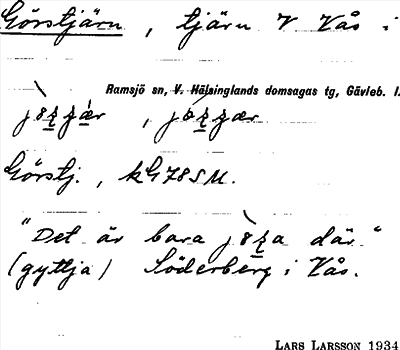 Görstjärn, tjärn V Vås i
Ramsjö sn, V. Hälsinglands domsagas tg, Gävleb. l.
Görstj., kG78SM.
"Det är bara där."
(gyttja) Söderberg i Vås.
LARS LARSSON 1934